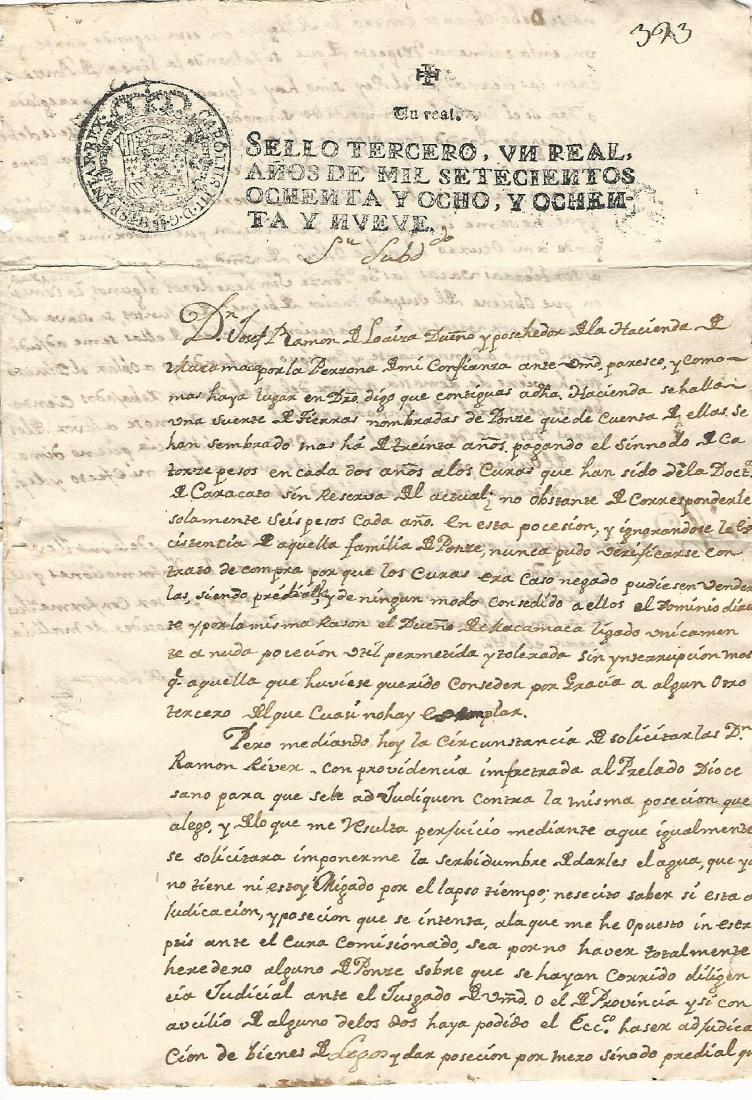 323
Un real.
CAROLUS III D G HISPANIAR REX
SELLO TERCERO, VN REAL,
AÑOS DE MIL SETECIENTOS
OCHENTA Y OCHO, Y OCHEN-
TA Y NUEVE.
Sr Subdo
Dn Josef Ramon de Loaiza Dueño y poshedor de la Hacienda de
Macamac por la Perzona de mi Confianza ante vmd, paresco, y como
mas haya lugar en Dro, digo, que contiguas adha, Hacienda se hallan
una suerte de tierras nombradas de Ponze que de Cuenta de ellas, se
han sembrado mas há de treinta años, pagando el Sinnodo de Ca
torze pesos en cada dos años a los Curas que han sido de la Doctª
de Caracato sin Reserva del actual; no obstante de Corresponderle
solamente seis pesos cada año. En esta pocesion, y ignorandose la Ec
cistencia de aquella familia de Ponze, nunca pudo verificarse con
trato de compra por que los Curas era Caso negado pudiesen vender
las, siendo y de ningun modo consedido a ellos el Dominio dire
te y por la misma Rason el Dueño de Macamaca ligado unicamen
te a nuda poceción util permetida y tolerada sin ynterrupción mas
q.e aquella que huviese querido Conseder por Gracia a algun Otro
tercero del que Cuasi no hay Exemplar.
Pero mediando hoy la Circunstancia de solicitarlas Dn
Ramon River con providencia impetrada al Prelado Dioce
sano para que se le adJudiquen contra la misma poseción que
alego, y de lo que me Resulta perjuicio mediante a que igualmente
se solicitara imponerme la serbidumbre de darles el agua, que ya
no tiene ni estoy obligado por el lapso tiempo; nesecito saber si esta ad
judicacion, y poseción que se intenta, a la que me he opuesto in escri
ptis ante el Cura Comisionado, sea por no haver totalmente
heredero alguno de Ponze sobre que se hayan Corrido diligen
cia Judicial ante el Jusgado de Vmd. O el de Provincia y si con
aucilio de alguno de los dos haya podido el Eccº haser adjudica
cion de bienes de Legos y dar poseción por mero sinodo predial qu